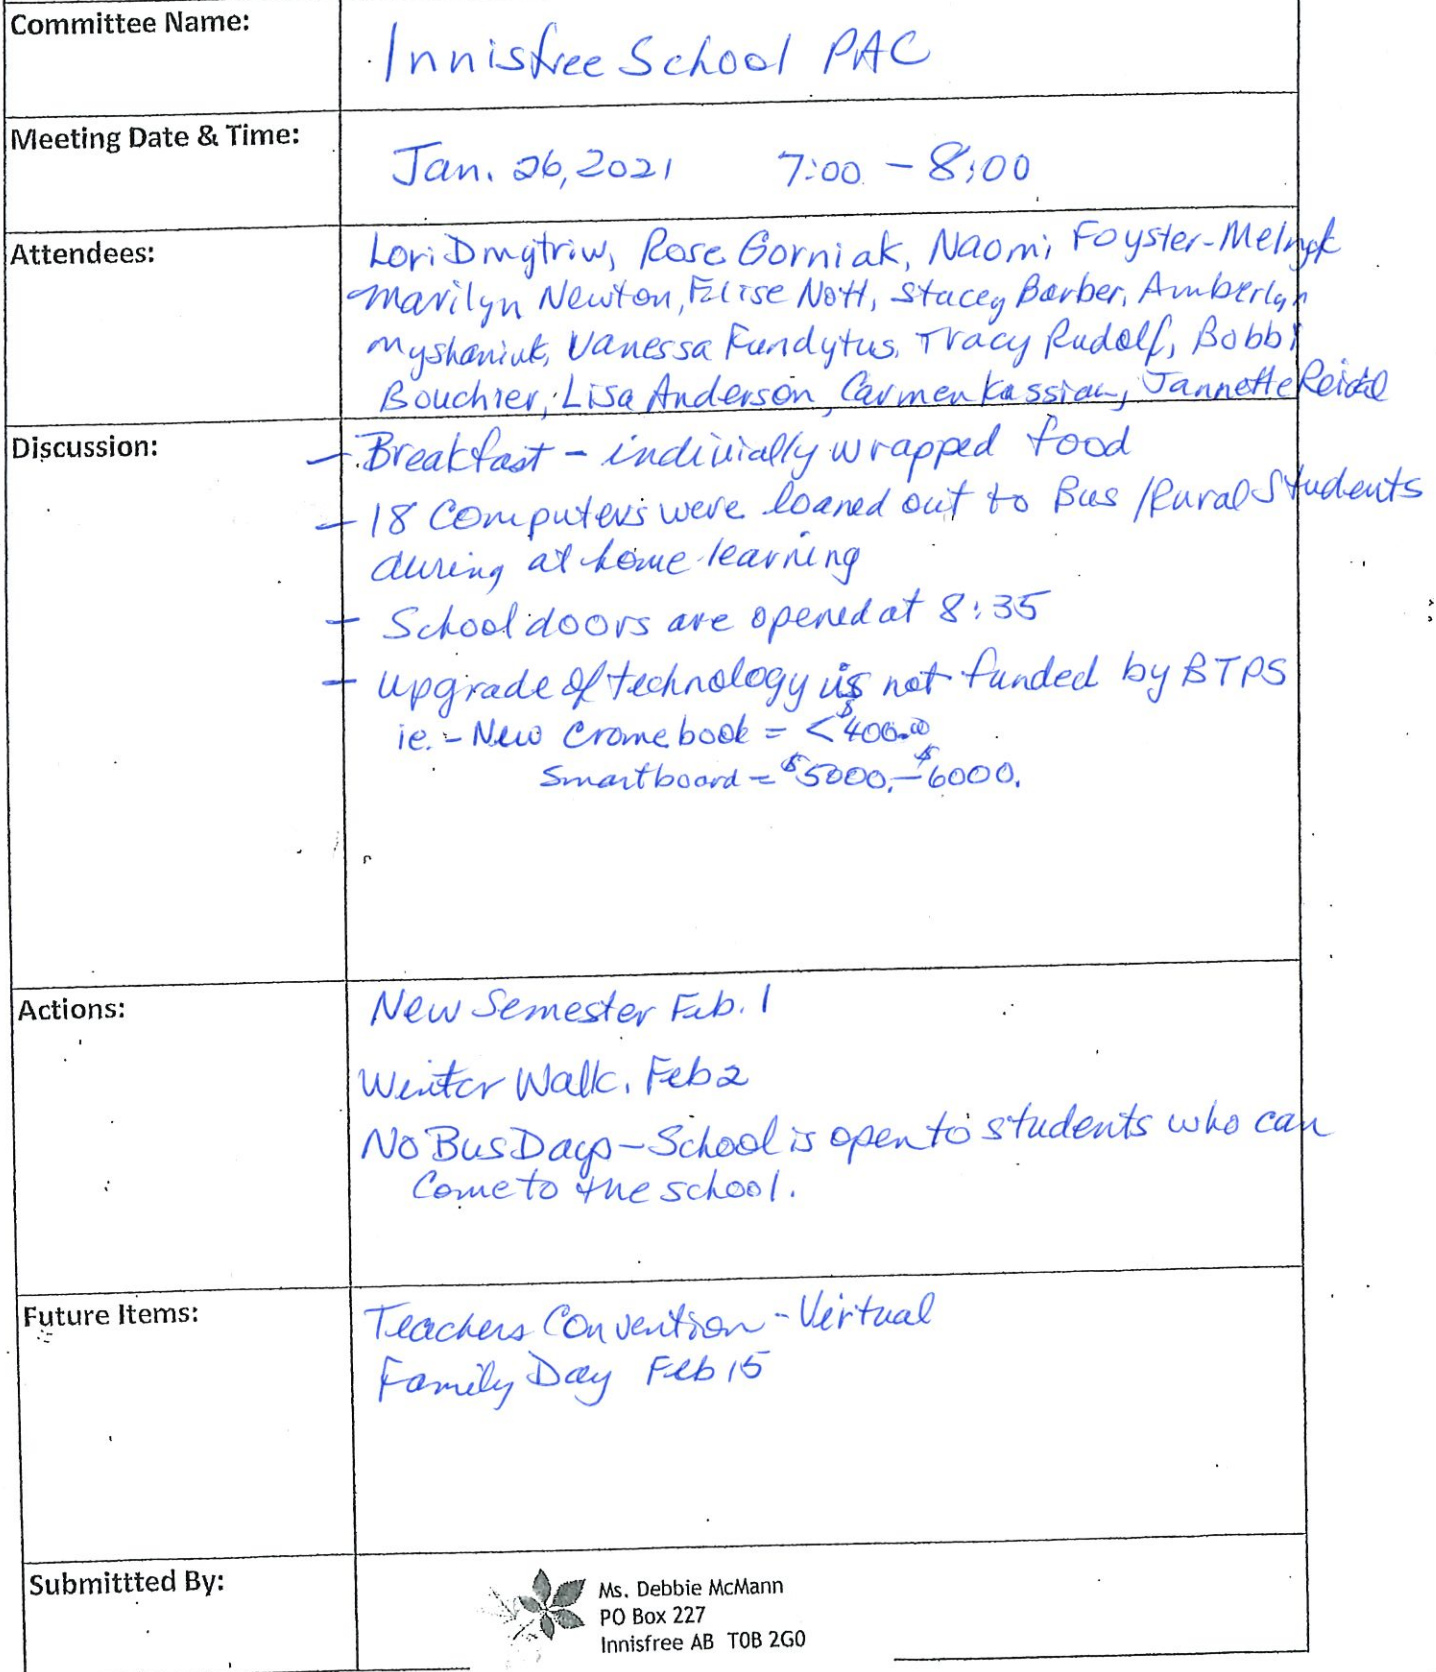 Committee Name:
Innisfree School PAC
Meeting Date & Time:
Jan. 26, 2021 7:00 - 8:00
Attendees:
Lori Dmytriw, Rose Gorniak, Naomi Foyster-Melnyk
Marilyn Newton, Elise Nott, Stacey Barber, Amberlyn
Myshaniuk, Vanessa Fundytus, Tracy Rudolf, Bobbi
Bouchier, Lisa Anderson, Carmen Kassian, Jannette Reidel
Discussion:
- Breakfast - indivially wrapped food
- 18 Computers were loaned out to Bus / Rural Students
during at home learning
- School doors are opened at 8:35
- Upgrade of technology is not funded by BTPS
ie. - New Cromebook = < $400.00
Smartboard = $5000. - $6000.
Actions:
New Semester Feb. 1
Winter Walk. Feb 2
No Bus Days - School is open to students who can
Come to the school.
Future Items:
Teachers Convention - Virtual
Family Day Feb 15
Submittted By:
Ms. Debbie McMann
PO Box 227
Innisfree AB T0B 2G0